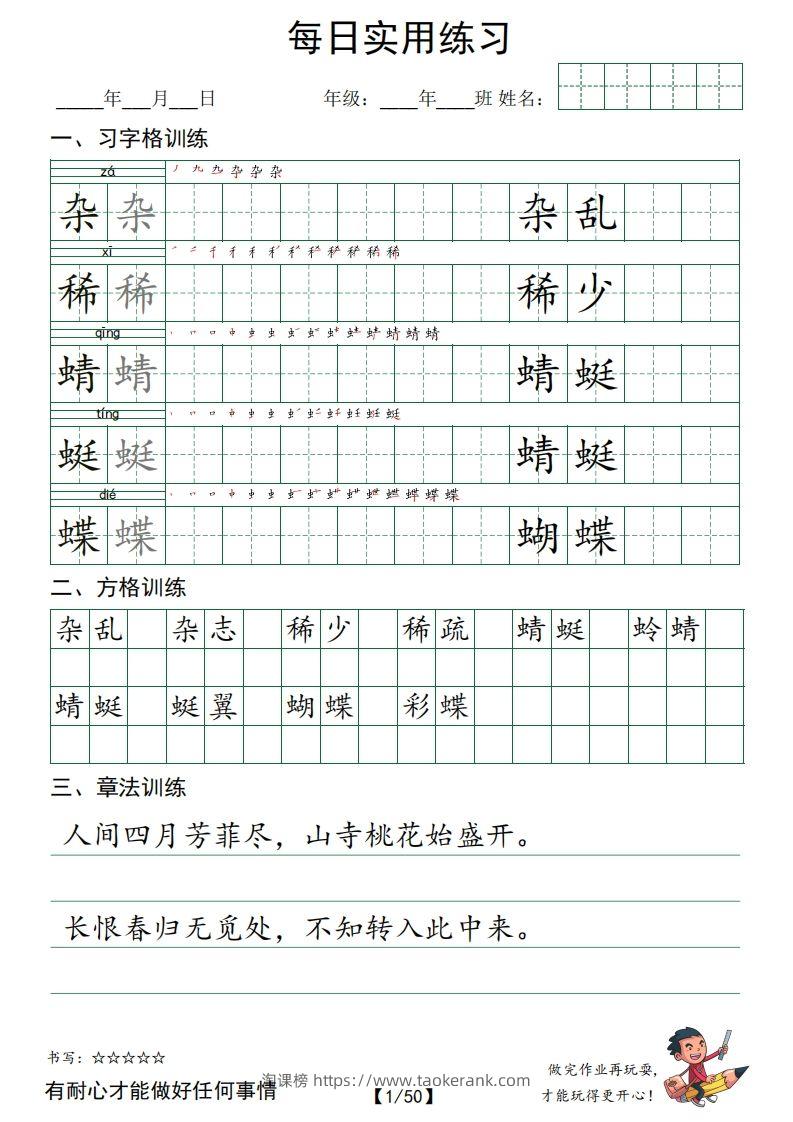 每日实用练习
_____年___月___日 年级：____年____班 姓名：
一、习字格训练
zá
杂 杂 杂 乱
xī
稀 稀 稀 少
qīng
蜻 蜻 蜻 蜓
tíng
蜓 蜓 蜻 蜓
dié
蝶 蝶 蝴 蝶
二、方格训练
杂 乱 杂 志 稀 少 稀 疏 蜻 蜓 蛉 蜻
蜻 蜓 蜓 翼 蝴 蝶 彩 蝶
三、章法训练
人间四月芳菲尽，山寺桃花始盛开。
长恨春归无觅处，不知转入此中来。
书写：☆☆☆☆☆
有耐心才能做好任何事情
淘课榜 https://www.taokerank.com
【1/50】
做完作业再玩耍，
才能玩得更开心！